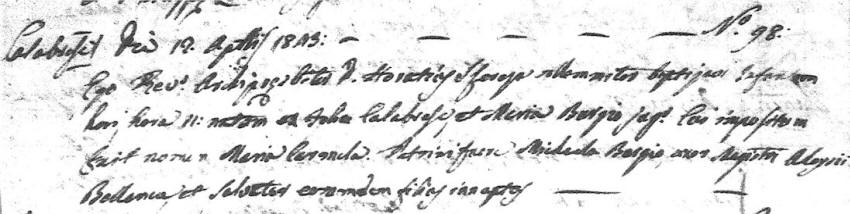 Calabrese Die 12. Aprilis 1843: — — — — — No. 98:
Ego Revs. Archipresbiter D. Horatius Sforza solemniter baptizavi Infantem
heri hora 11: natam ex Calabrese, et Maria Borgio jug. Cui impositum
fuit nomen Maria Carmela. Patrini fuere Michaela Borgio uxor Magistri Aloysii
Bellanca, et Salvator eorumdem filius innuptus — —